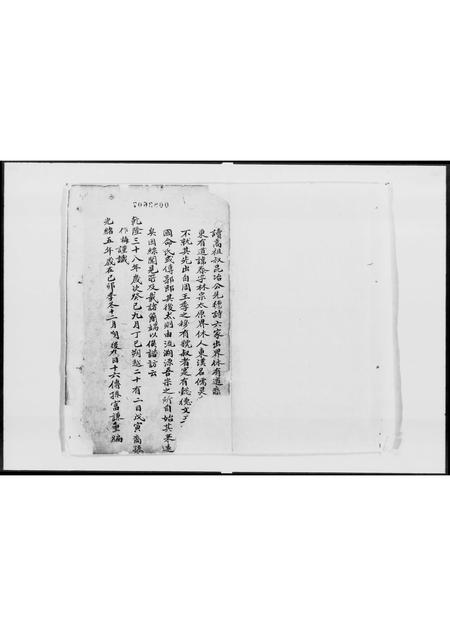 讀高祖叔昆冶公先穗詩六家出界休有道慕
東有道諱泰字林宗太原界休人東漢名儒
不就其先出自周王季之穆有虢叔者寔有懿德文王
國命氏或傳郭郎其後太則由流溯源吾宗之所自始其來遠
矣因綜聞見所及載諸簡端以俟諮訪云
乾隆三十八年歲次癸巳九月丁巳朔越二十有二日戊寅裔孫
作梅謹識
光緒五年歲在己卯季冬十二月朔後九日十六傳孫富謙重編